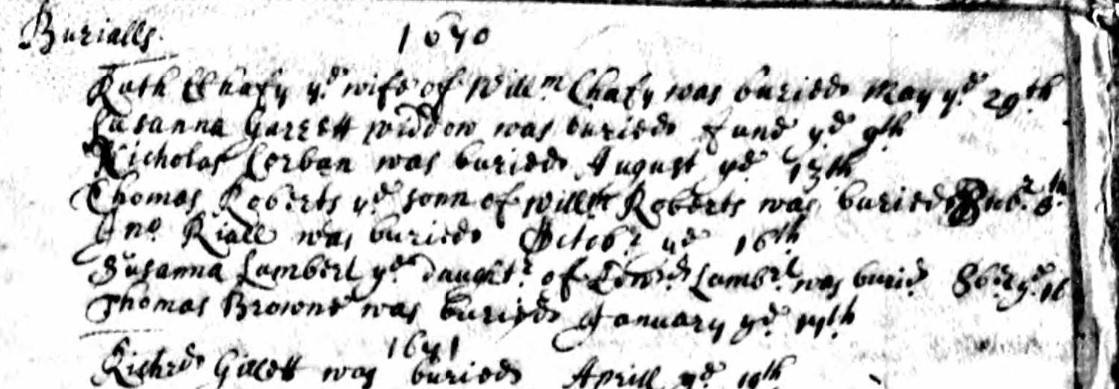 Burialls. 1670
Ruth Chafy ye wife of Willm Chafy was buried May ye 29th
Susanna Garrett widdow was buried June ye 9th
Nicholas Corban was buried August ye 13th
Thomas Roberts ye sonn of Willm Roberts was buried 8th
Jno Riall was buried Octobr ye 16th
Susanna Lambert ye daughtr of Edwd Lambrt was burid 8br ye 16
Thomas Browne was buried January ye 17th
1671
Richrd Gillett was buried Aprill ye 19th